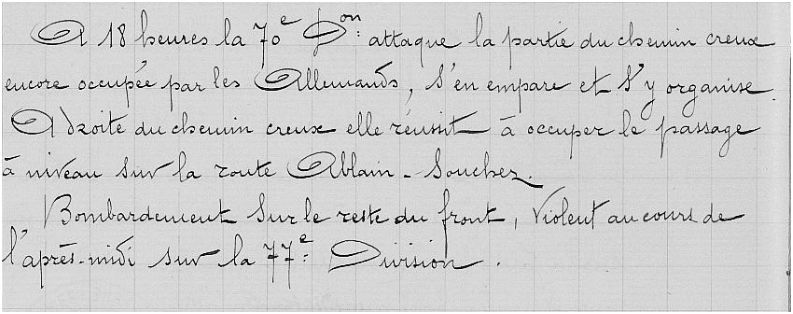 A 18 heures la 70e Don attaque la partie du chemin creux
encore occupée par les Allemands, s'en empare et s'y organise.
A droite du chemin creux elle réussit à occuper le passage
à niveau sur la route Ablain-Souchez.
Bombardement sur le reste du front, violent au cours de
l'après-midi sur la 77e Division.